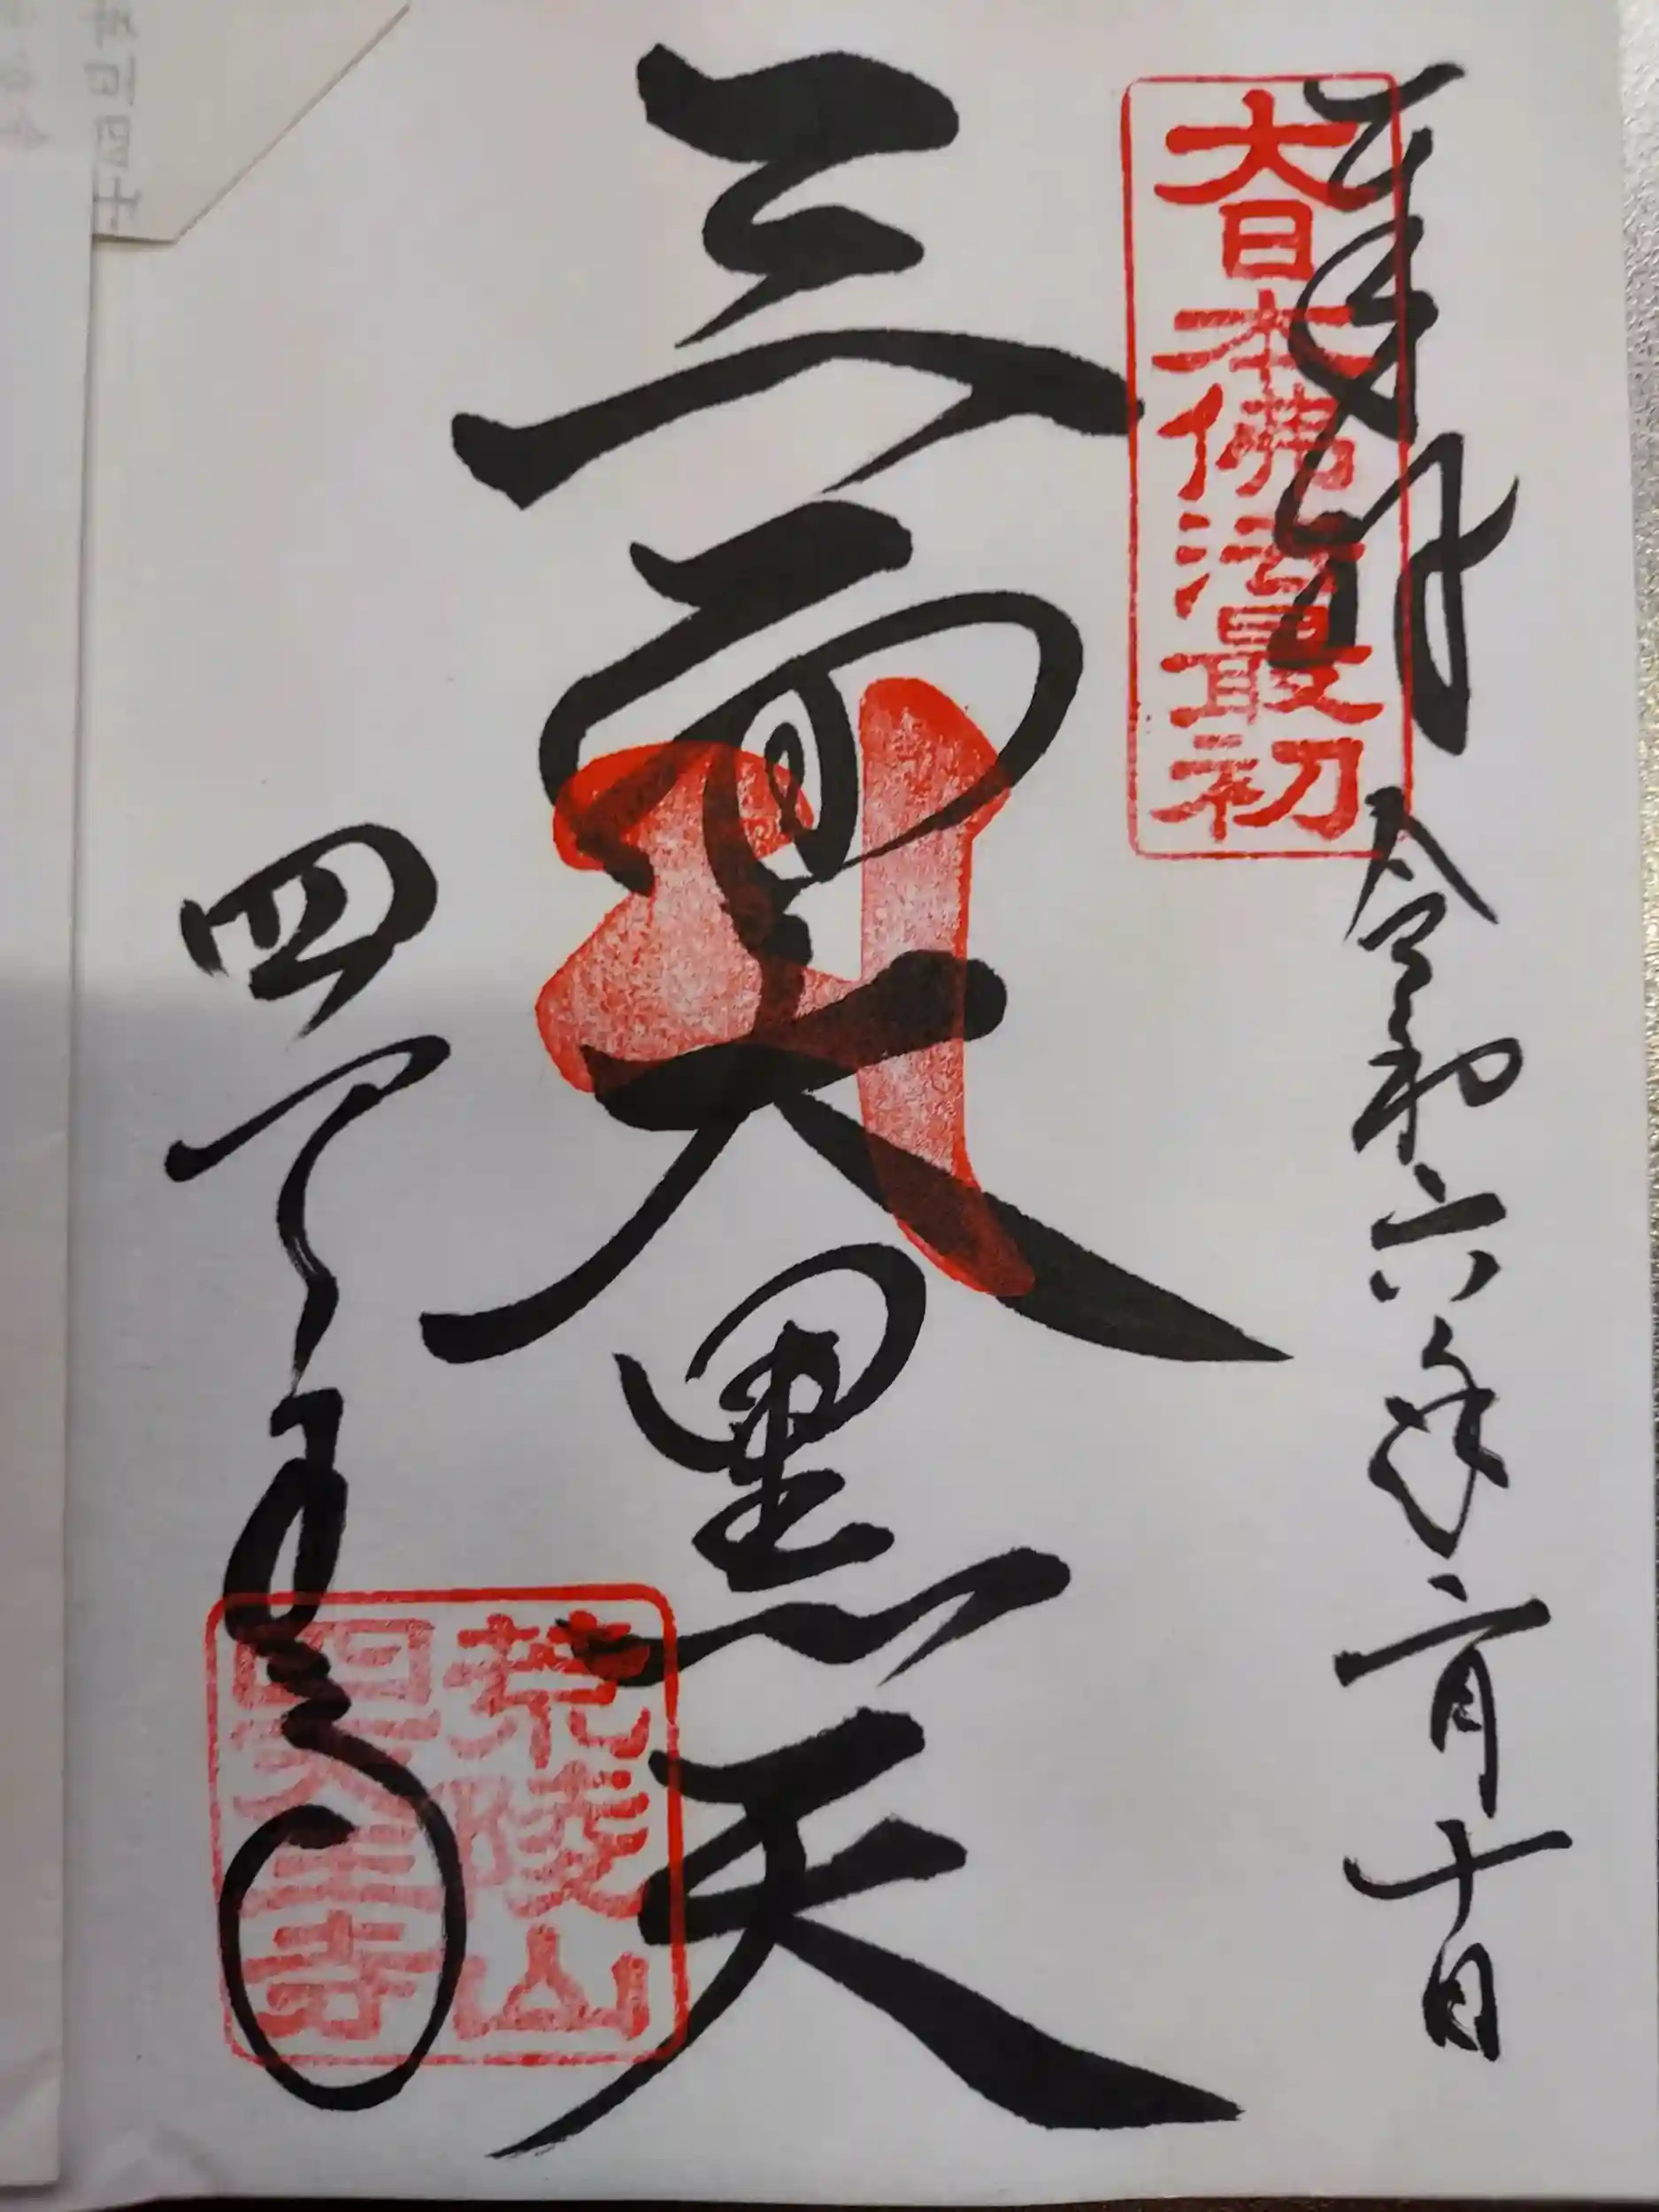 奉拝 令和六年二月十日
大日本佛法最初
三面大黒天
四天王寺
荒陵山
四天王寺